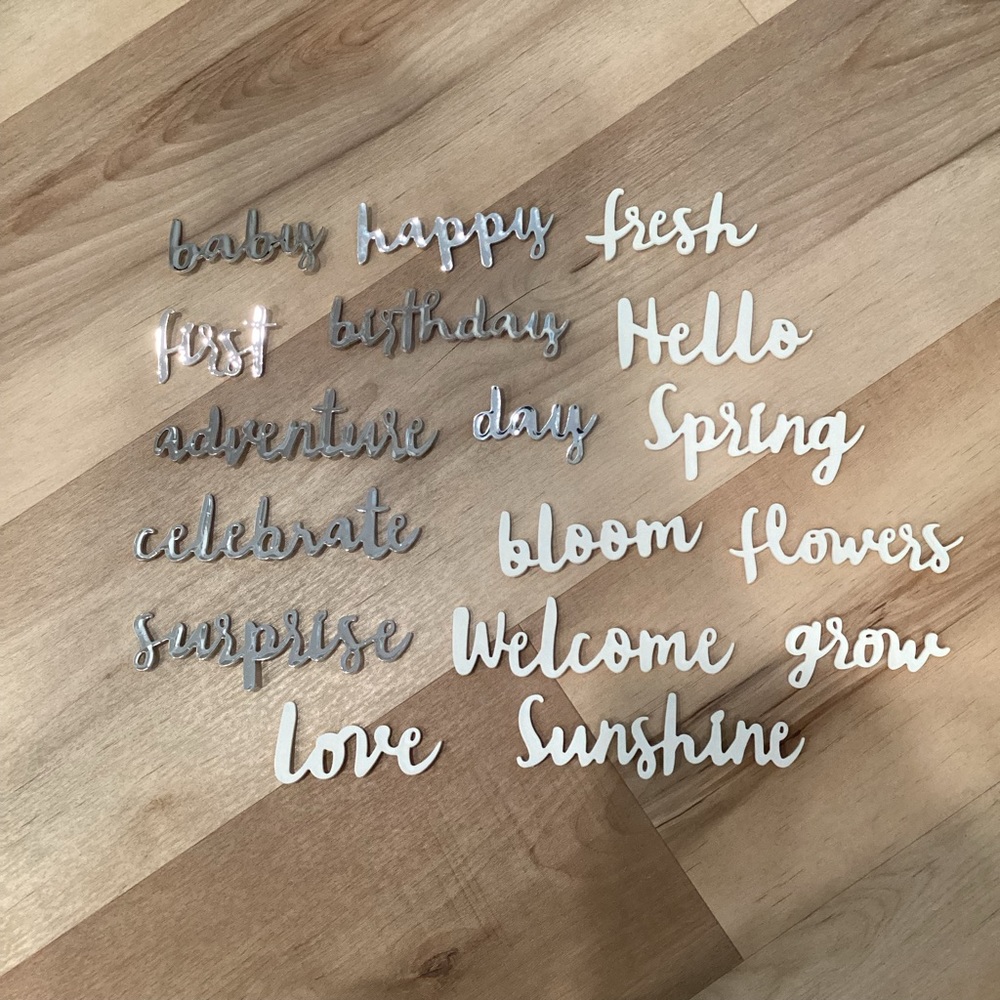 baby happy fresh
first birthday Hello
adventure day Spring
celebrate bloom flowers
surprise Welcome grow
love Sunshine